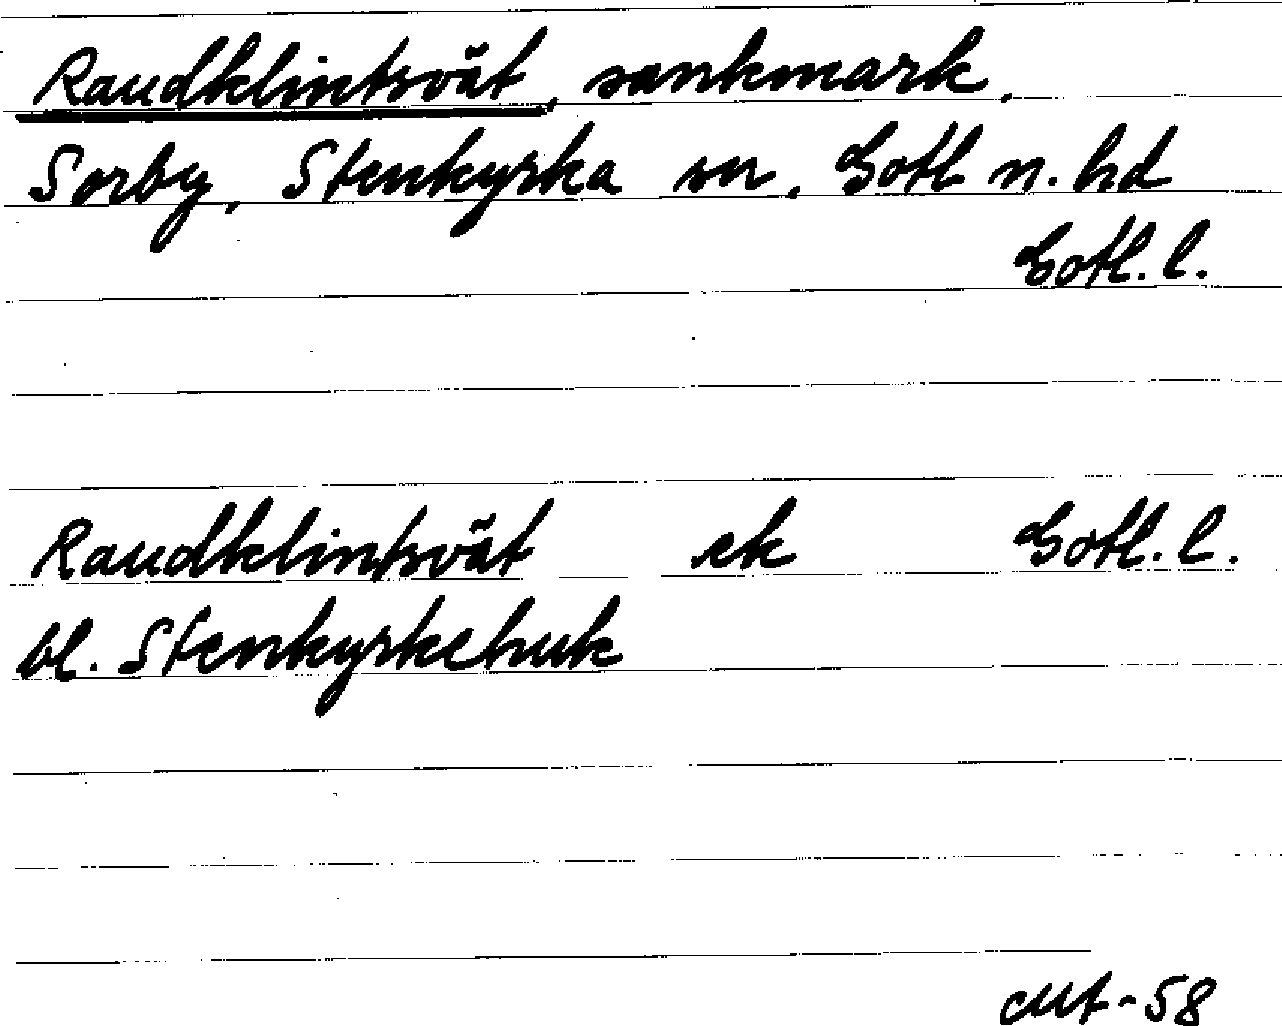 Raudklintsvät, sankmark,
Sorby, Stenkyrka sn, Gotl n. hd
Gotl. l.
Raudklintsvät ek Gotl. l.
bl. Stenkyrkehuk
-58